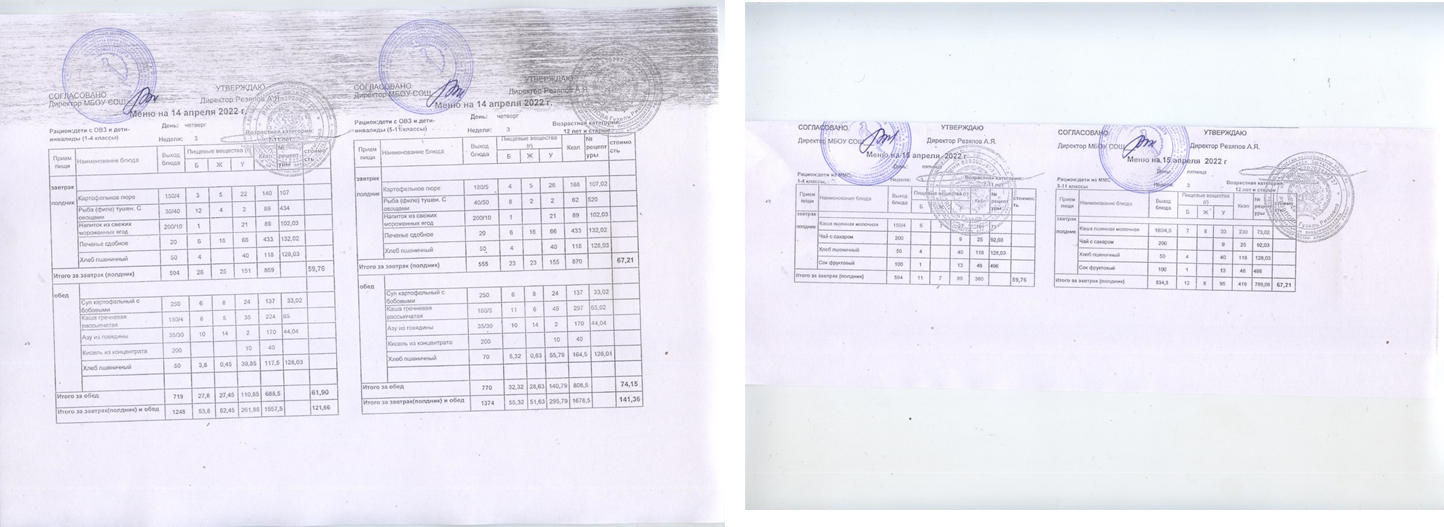 СОГЛАСОВАНО
Директор МБОУ СОШ
УТВЕРЖДАЮ
Директор Резяпов А.Я.
Меню на 14 апреля 2022 г.
Рацион:дети с ОВЗ и дети-инвалиды (1-4 классы)
День: четверг
Неделя: 3
Возрастная категория:
Прием пищи Наименование блюда Выход блюда Пищевые вещества (г) Б Ж У Ккал № рецептуры стоимость
завтрак
полдник
Картофельное пюре 150/4 3 5 22 140 107
Рыба (филе) тушен. С овощами 30/40 12 4 2 89 434
Напиток из свежих мороженных ягод 200/10 1 21 89 102,03
Печенье сдобное 20 6 16 66 433 132,02
Хлеб пшеничный 50 4 40 118 128,03
Итого за завтрак (полдник) 504 26 25 151 869 59,76
обед
Суп картофельный с бобовыми 250 6 8 24 137 33,02
Каша гречневая рассыпчатая 180/4 8 5 35 224 65
Азу из говядины 35/30 10 14 2 170 44,04
Кисель из концентрата 200 10 40
Хлеб пшеничный 50 3,8 0,45 39,85 117,5 128,03
Итого за обед 719 27,8 27,45 110,85 688,5 61,90
Итого за завтрак(полдник) и обед 1248 53,8 52,45 261,85 1557,5 121,66
СОГЛАСОВАНО
Директор МБОУ СОШ
УТВЕРЖДАЮ
Директор Резяпов А.Я.
Меню на 14 апреля 2022 г.
Рацион:дети с ОВЗ и дети-инвалиды (5-11 классы)
День: четверг
Неделя: 3
Возрастная категория:
12 лет и старше
Прием пищи Наименование блюда Выход блюда Пищевые вещества (г) Б Ж У Ккал № рецептуры стоимость
завтрак
полдник
Картофельное пюре 180/5 4 5 26 168 107,02
Рыба (филе) тушен. С овощами 40/50 8 2 2 62 520
Напиток из свежих мороженных ягод 200/10 1 21 89 102,03
Печенье сдобное 20 6 16 66 433 132,02
Хлеб пшеничный 50 4 40 118 128,03
Итого за завтрак (полдник) 555 23 23 155 870 67,21
обед
Суп картофельный с бобовыми 250 6 8 24 137 33,02
Каша гречневая рассыпчатая 180/5 11 6 49 297 65,02
Азу из говядины 35/30 10 14 2 170 44,04
Кисель из концентрата 200 10 40
Хлеб пшеничный 70 5,32 0,63 55,79 164,5 128,01
Итого за обед 770 32,32 28,63 140,79 808,5 74,15
Итого за завтрак(полдник) и обед 1374 55,32 51,63 295,79 1678,5 141,36
СОГЛАСОВАНО
Директор МБОУ СОШ
УТВЕРЖДАЮ
Директор Резяпов А.Я.
Меню на 15 апреля 2022 г
День: пятница
Рацион:дети из ММС
1-4 классы,
Неделя:
Возрастная категория:
Прием пищи Наименование блюда Выход блюда Пищевые вещества (г) Б Ж У Ккал № рецептуры стоимость
завтрак
полдник
Каша пшенная молочная 150/4 6
Чай с сахаром 200 9 25 92,03
Хлеб пшеничный 50 4 40 118 128,03
Сок фруктовый 100 1 13 46 496
Итого за завтрак (полдник) 504 11 7 89 380 59,76
СОГЛАСОВАНО
Директор МБОУ СОШ
УТВЕРЖДАЮ
Директор Резяпов А.Я.
Меню на 15 апреля 2022 г
День: пятница
Рацион:дети из ММС
5-11 классы
Неделя: 3
Возрастная категория:
12 лет и старше
Прием пищи Наименование блюда Выход блюда Пищевые вещества (г) Б Ж У Ккал № рецептуры стоимость
завтрак
полдник
Каша пшенная молочная 180/4,5 7 8 33 230 73,02
Чай с сахаром 200 9 25 92,03
Хлеб пшеничный 50 4 40 118 128,03
Сок фруктовый 100 1 13 46 496
Итого за завтрак (полдник) 534,5 12 8 95 419 789,08 67,21